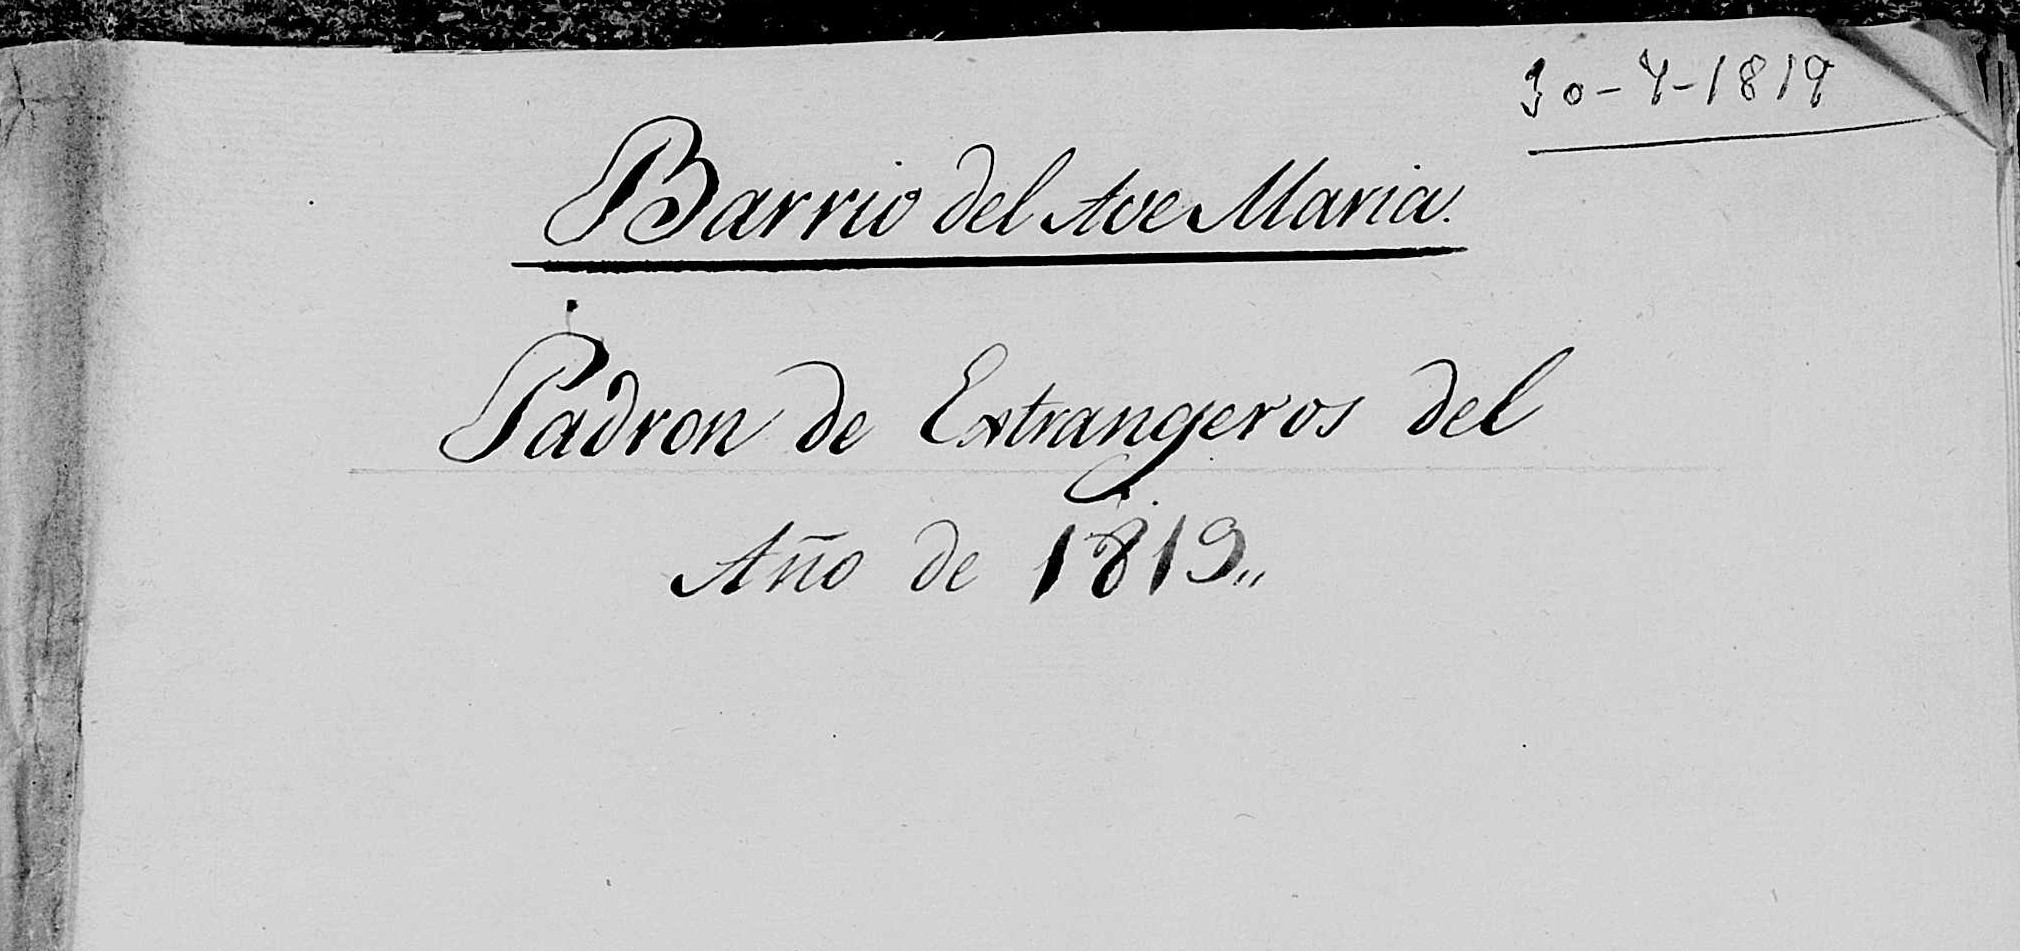 30-4-1819
Barrio del Ave Maria.
Padron de Extrangeros del
Año de 1819,,